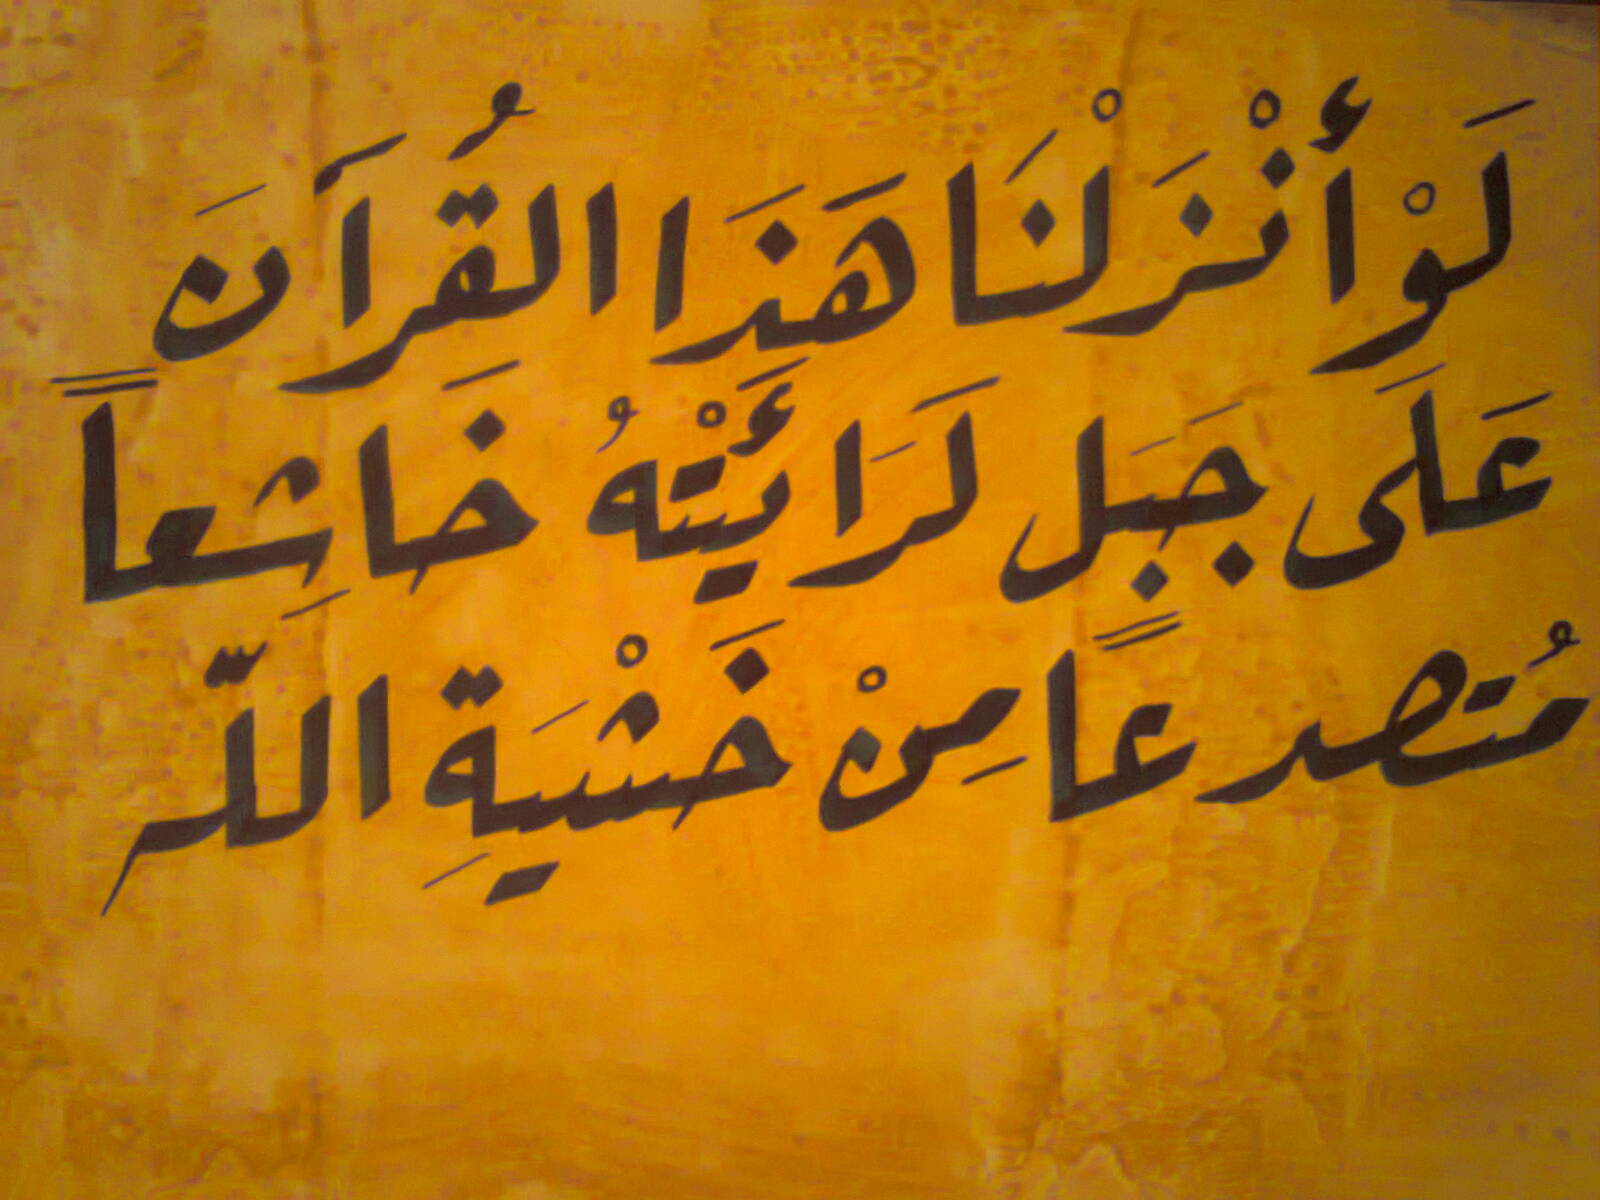 لَوْ أَنْزَلْنَا هَذَا القُرآنَ
عَلَى جَبَل لَرَأَيْتَهُ خَاشِعاً
مُتصدعًا مِنْ خَشْيَةِ اللّه